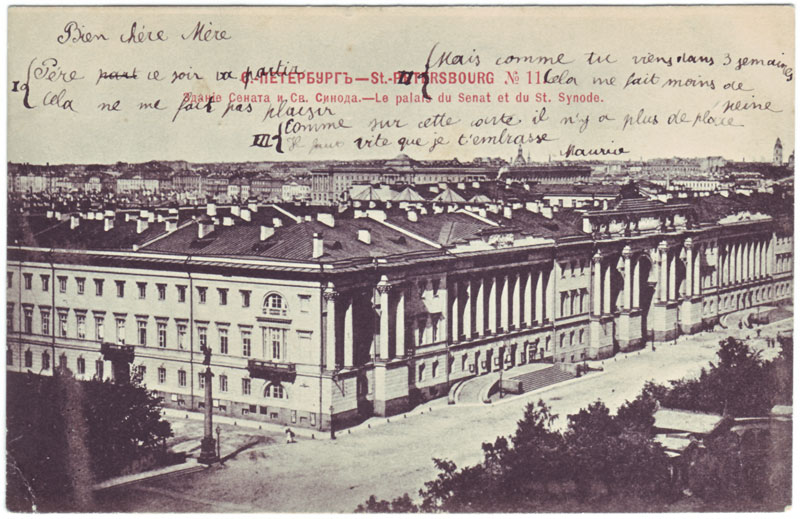 Bien chère Mère
I° { Père part ce soir va partir
Cela ne me fait pas plaisir
II { Mais comme tu viens dans 3 semaines
Cela me fait moins de
peine
С.-ПЕТЕРБУРГЪ—St.-PETERSBOURG № 11
Зданіе Сената и Св. Синода.—Le palais du Senat et du St. Synode.
III { Comme sur cette carte il n'y a plus de place
vite que je t'embrasse
Maurice